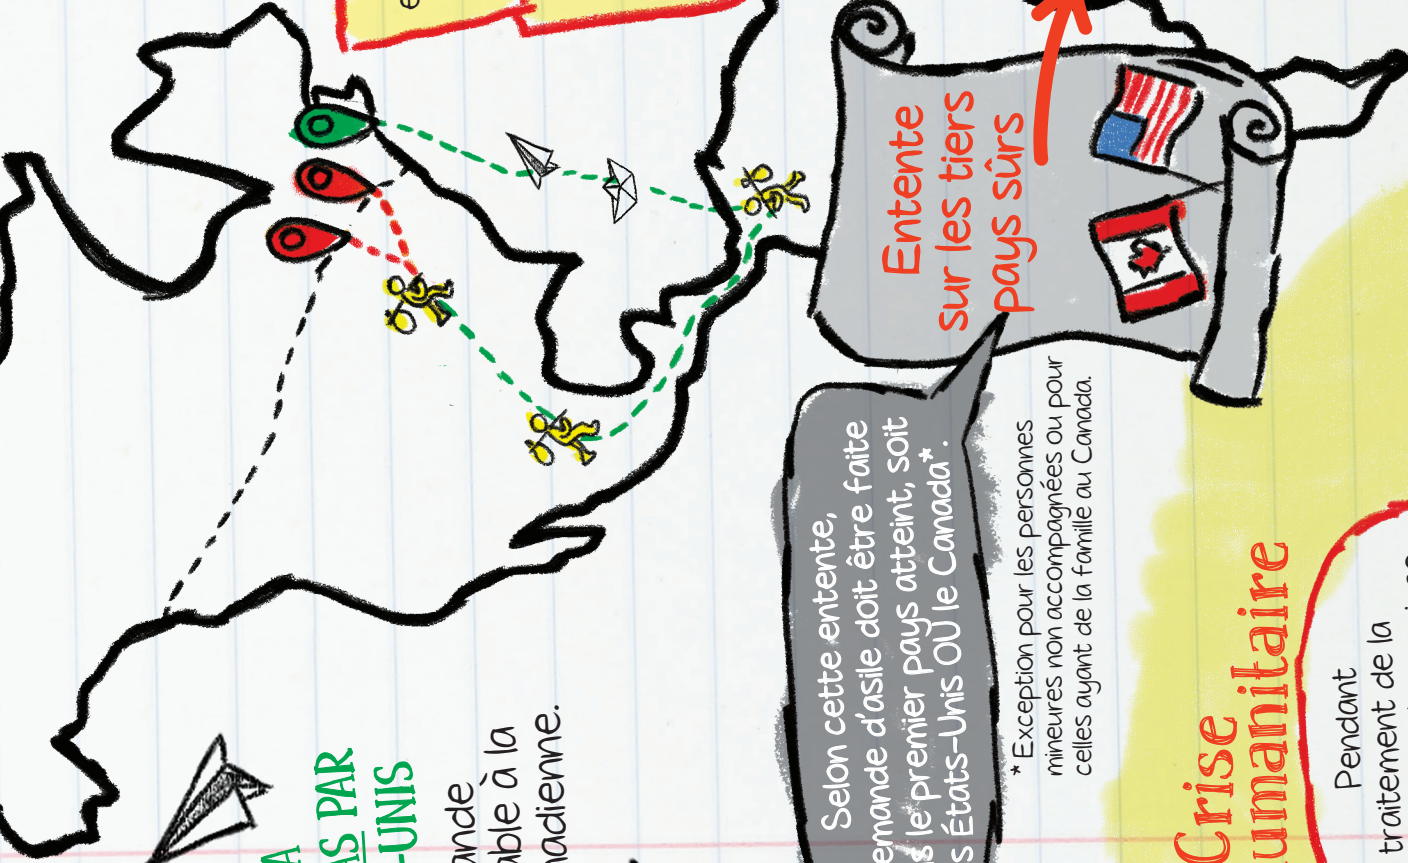 A
AS PAR
-UNIS
ande
able à la
nadienne.
Entente
sur les tiers
pays sûrs
Selon cette entente,
emande d'asile doit être faite
s le premier pays atteint, soit
s États-Unis OU le Canada*.
* Exception pour les personnes
mineures non accompagnées ou pour
celles ayant de la famille au Canada.
Crise
umanitaire
Pendant
traitement de la